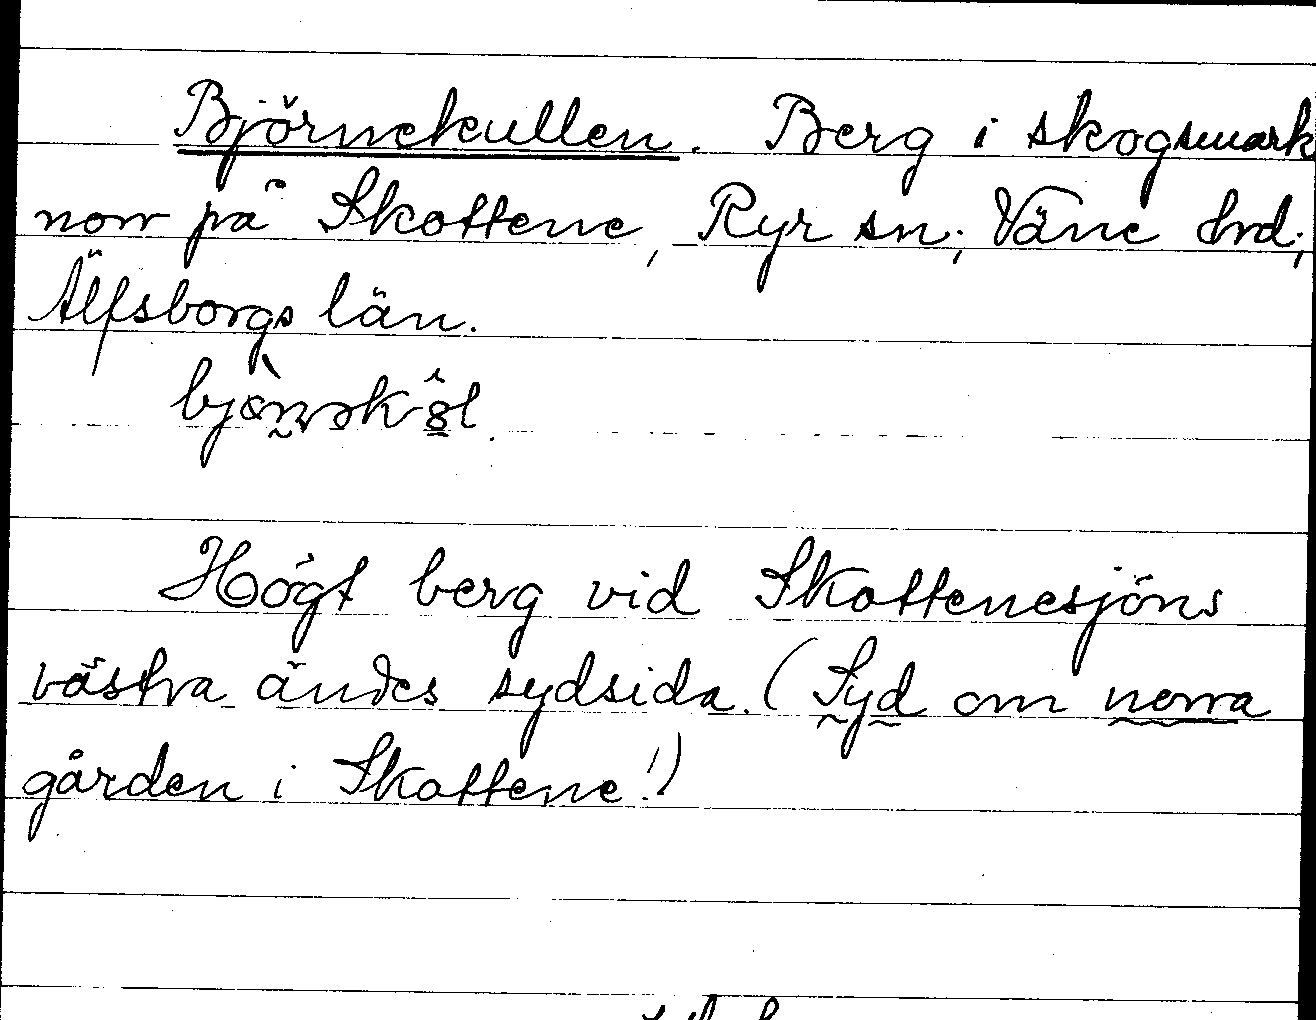 Björnekullen. Berg i skogsmark
norr på Skottene, Ryr sn; Väne hrd;
Älfsborgs län.
Högt berg vid Skottenesjöns
västra ändes sydsida. (Syd om norra
gården i Skottene!)